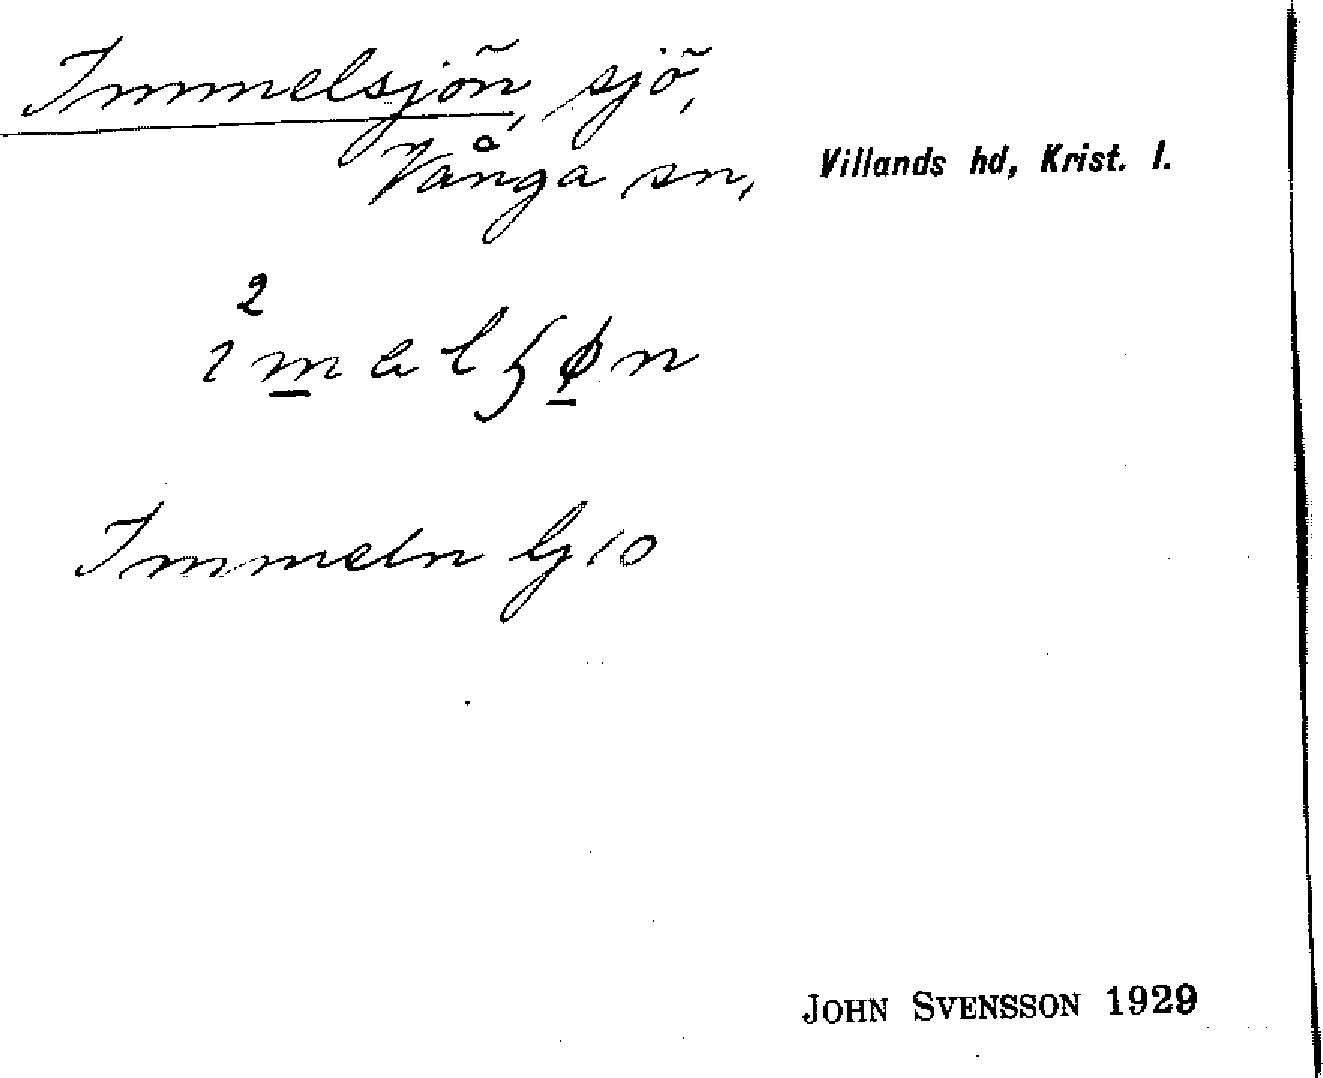 Immelsjön, sjö,
Vånga sn, Villands hd, Krist. l.
Immeln Gj 10
JOHN SVENSSON 1929